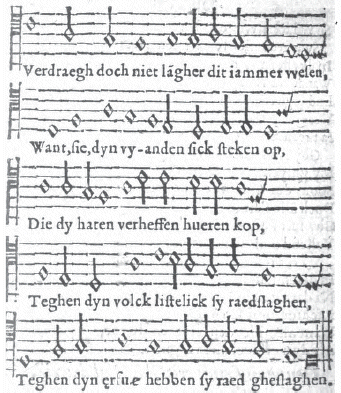 Verdraegh doch niet lãgher dit iammer wesen,
Want, sie, dyn vy-anden sick steken op,
Die dy haten verheffen hueren kop,
Teghen dyn volck listelick sy raedslaghen,
Teghen dyn ęrfuæ hebben sy raed gheslaghen.